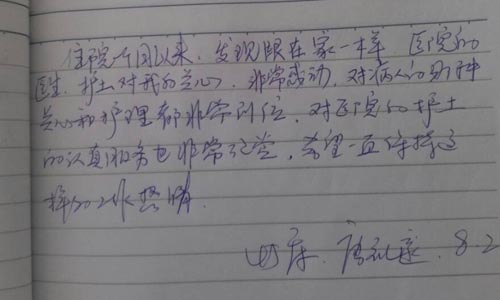 住院个月以来，发现跟在家一样，医院的
医生、护士对我的关心，非常感动，对病人的
关心和护理都非常到位，对医院的护士
的认真服务也非常，希望一直保持这
样的
床 8.2